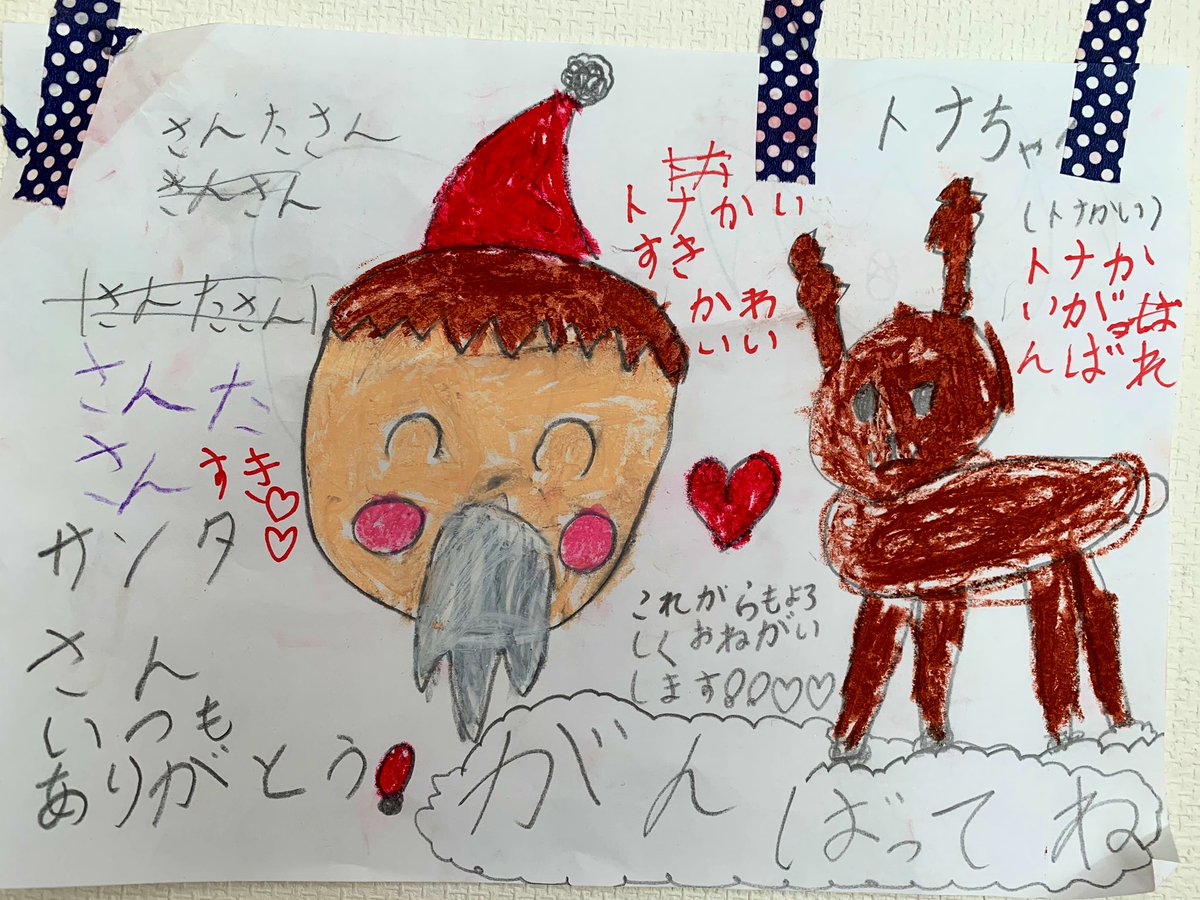 さんたさん
さんさん
さんたさん
さんた
さん
すき♡♡
サンタ
さん
いつも
ありがとう!
トナカ
トナかい
すき
かわ
いい
トナちゃ
(トナかい)
トナか
いがっ
んばれ
これからもよろ
しくおねがい
します!!♡♡
がんばってね